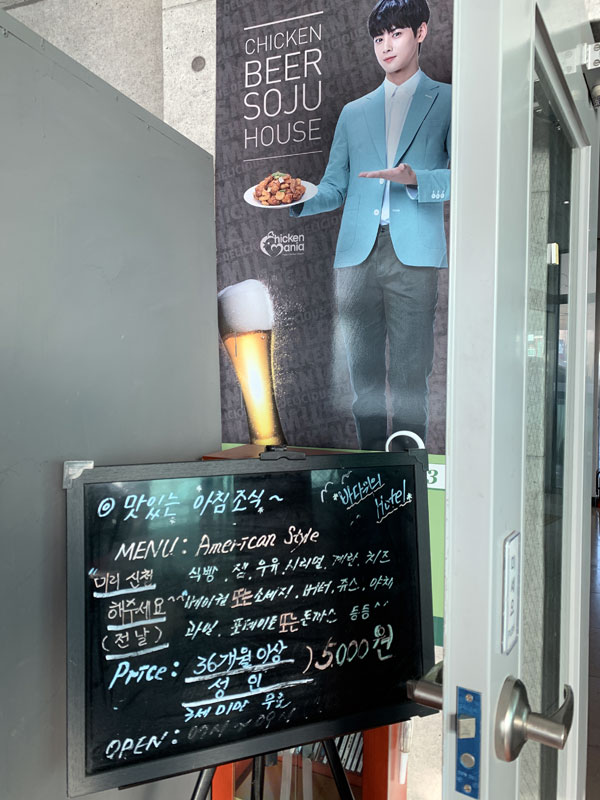 CHICKEN
BEER
SOJU
HOUSE
Chicken
Mania
◎ 맛있는 아침조식~
바다위의
Hotel
MENU: American Style
미리 신청
해주세요^^
(전날)
식빵. 쨈. 우유. 시리얼. 계란. 치즈
베이컴 또는 소세지. 버터. 쥬스. 야채
과일. 포테이토 또는 돈까스 등등^^
Price: 36개월이상
성인
) 5,000원
3세미만 무료
OPEN:
미세요